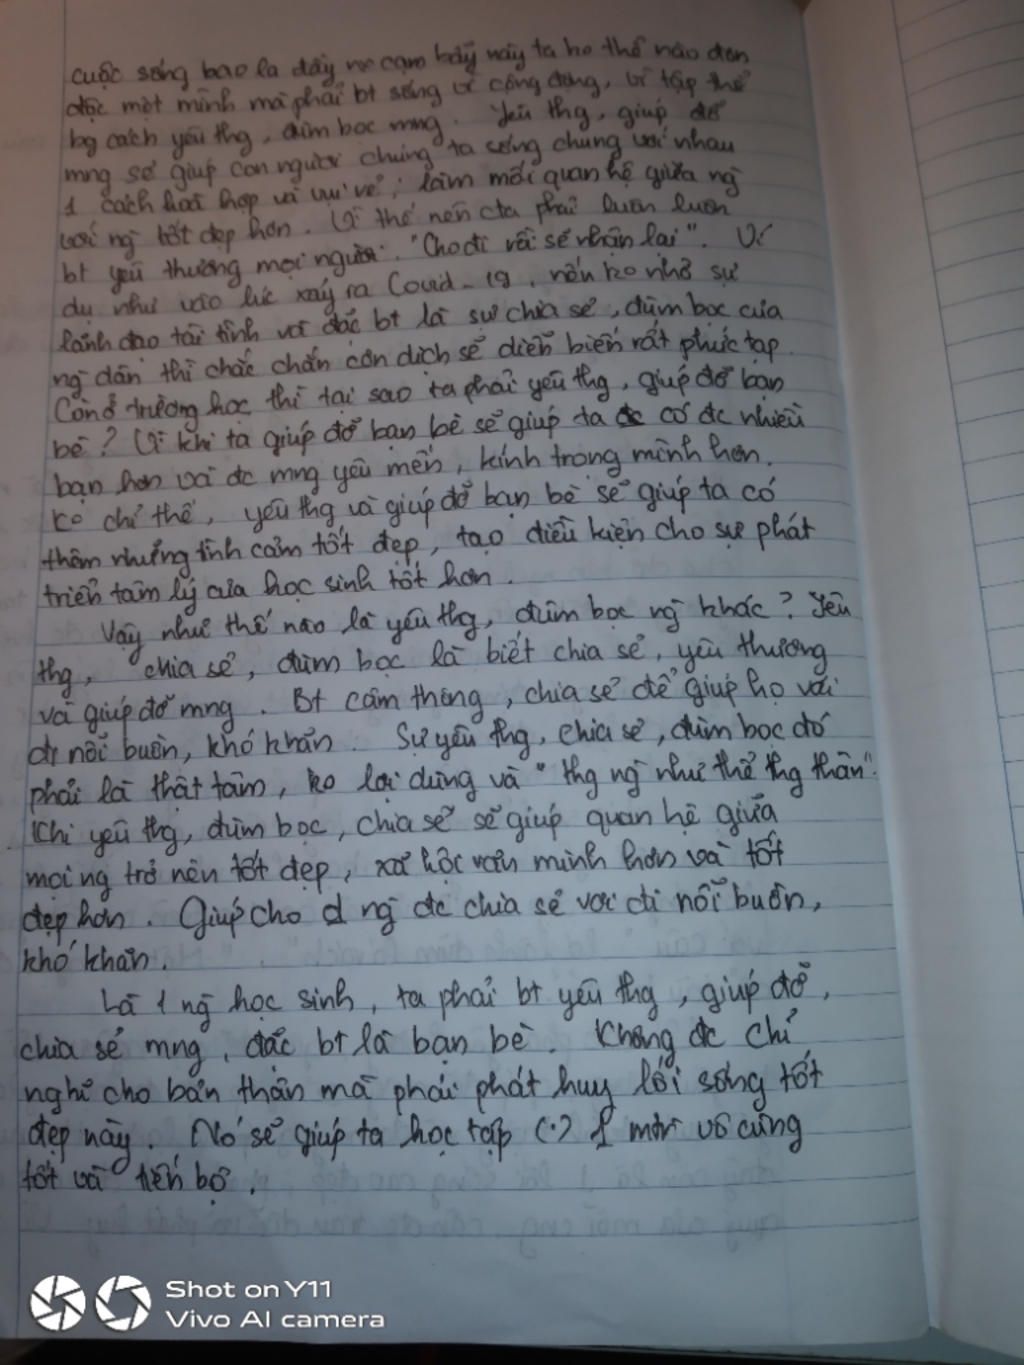 cuộc sống bao la đầy cạm bẫy này ta ko thể nào đơn
độc một mình mà phải bt sống vì cộng đồng, vì tập thể
bg cách yêu thg, đùm bọc mng. Yêu thg, giúp đỡ
mng sẽ giúp con người chúng ta sống chung với nhau
1 cách hoà hợp và vui vẻ, làm mối quan hệ giữa ng
với ng tốt đẹp hơn. Vì thế nên cta phải luôn luôn
bt yêu thương mọi người. "Cho đi rồi sẽ nhận lại". Ví
dụ như vào lúc xảy ra Covid-19, nếu ko nhờ sự
lãnh đạo tài tình và đặc bt là sự chia sẻ, đùm bọc của
ng dân thì chắc chắn cơn dịch sẽ diễn biến rất phức tạp.
Còn ở trường học thì tại sao ta phải yêu thg, giúp đỡ bạn
bè? Vì khi ta giúp đỡ bạn bè sẽ giúp ta có đc nhiều
bạn hơn và đc mng yêu mến, kính trọng mình hơn.
Ko chỉ thế, yêu thg và giúp đỡ bạn bè sẽ giúp ta có
thêm những tình cảm tốt đẹp, tạo điều kiện cho sự phát
triển tâm lý của học sinh tốt hơn.
Vậy như thế nào là yêu thg, đùm bọc ng khác? Yêu
thg, chia sẻ, đùm bọc là biết chia sẻ, yêu thương
và giúp đỡ mng. Bt cảm thông, chia sẻ để giúp họ vơi
đi nỗi buồn, khó khăn. Sự yêu thg, chia sẻ, đùm bọc đó
phải là thật tâm, ko lợi dụng và "thg ng như thể thg thân".
Khi yêu thg, đùm bọc, chia sẻ sẽ giúp quan hệ giữa
mọi ng trở nên tốt đẹp, xã hội văn minh hơn và tốt
đẹp hơn. Giúp cho ng đc chia sẻ vơi đi nỗi buồn,
khó khăn.
Là 1 ng học sinh, ta phải bt yêu thg, giúp đỡ,
chia sẻ mng, đặc bt là bạn bè. Không đc chỉ
nghĩ cho bản thân mà phải phát huy lối sống tốt
đẹp này. Nó sẽ giúp ta học tập (.) 1 mtr vô cùng
tốt và tiến bộ.
Shot on Y11
Vivo AI camera